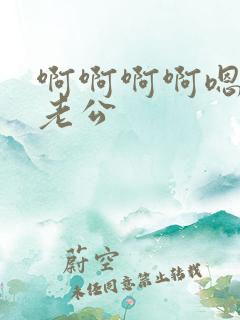 啊啊啊啊嗯
老公
蔚空
未经同意禁止转载